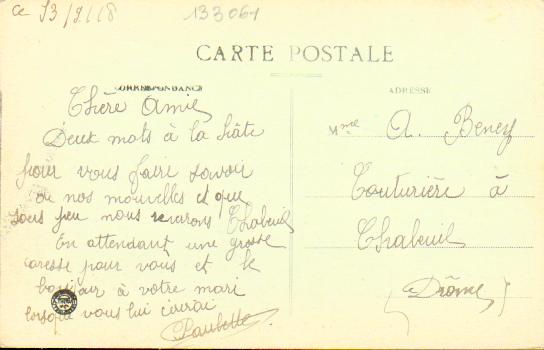 ce 13/9/18
133061
CARTE POSTALE
CORRESPONDANCE
ADRESSE
Chère Amie
Deux mots à la hâte
pour vous faire savoir
de nos nouvelles et que
sous peu nous reverons Chabeuil
En attendant une grosse
caresse pour vous et le
bonjour à votre mari
lorsque vous lui écrirai
Paulette
Mme A. Beney
Couturière à
Chabeuil
(Drôme)